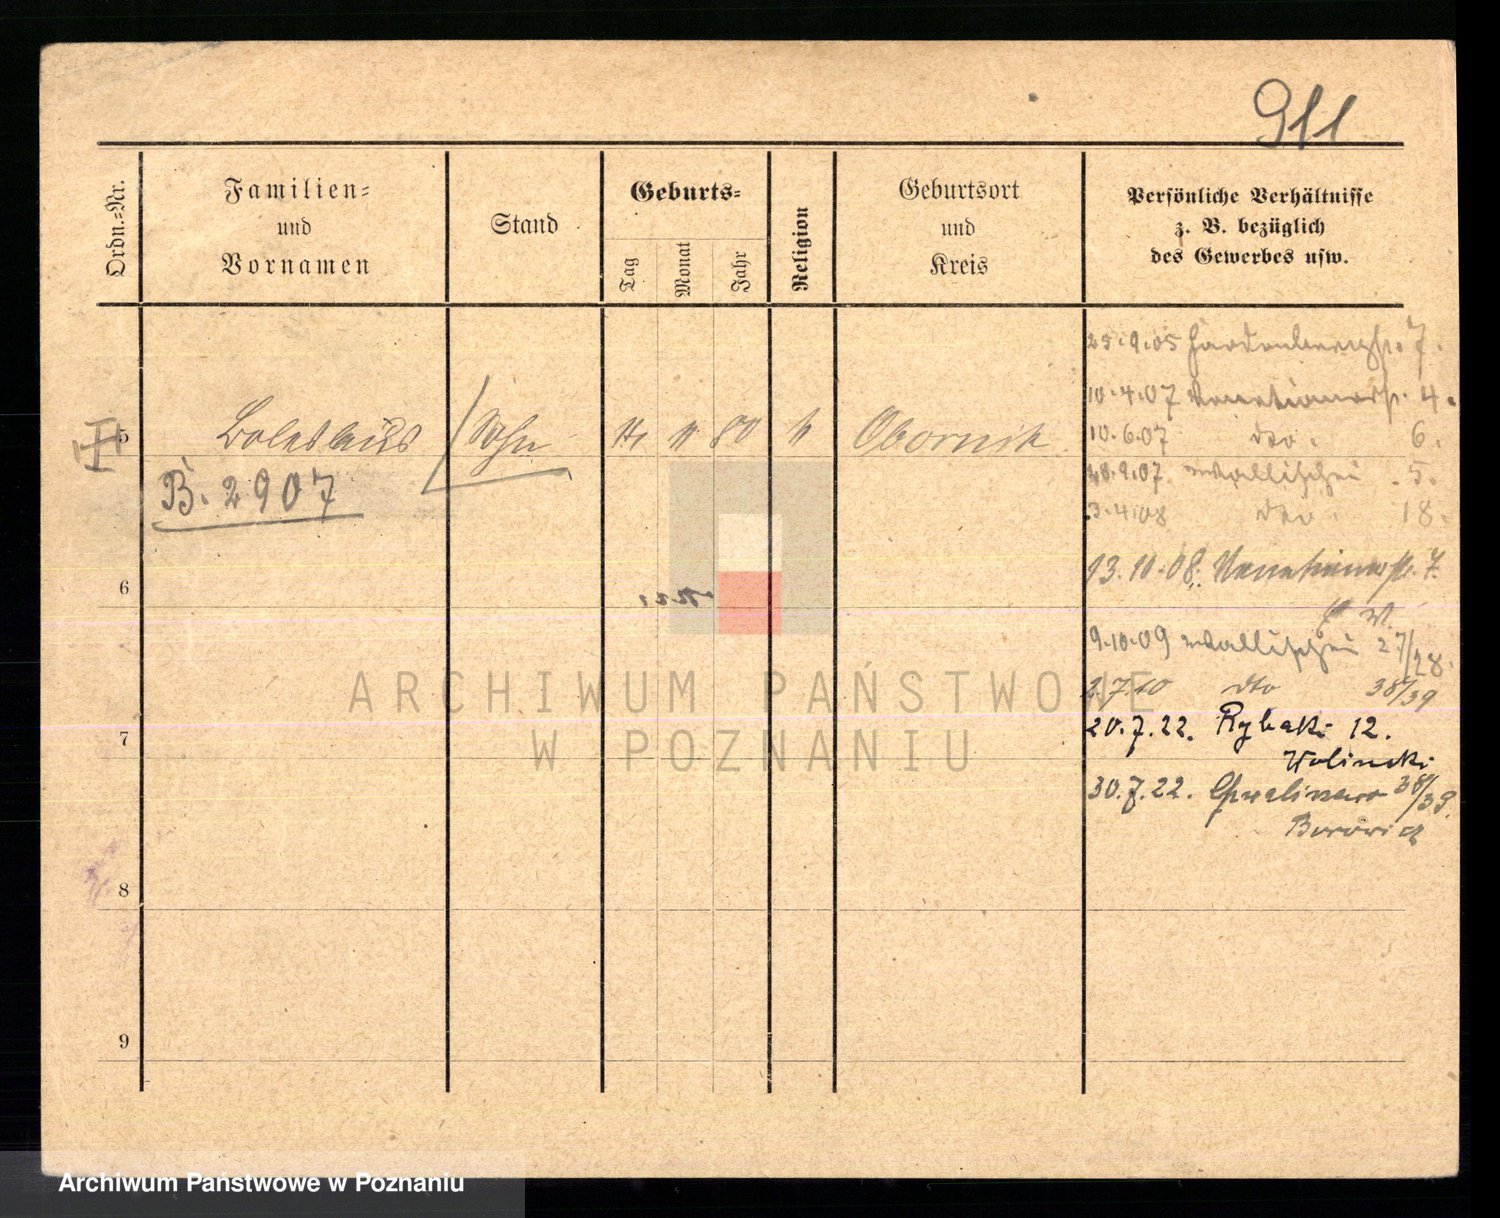 911
Ordn.-Nr.
Familien-
und
Vornamen
Stand
Geburts-
Tag
Monat
Jahr
Religion
Geburtsort
und
Kreis
Persönliche Verhältnisse
z. B. bezüglich
des Gewerbes usw.
25.9.05 Hardenbergstr. 7.
10.4.07 Venetianerstr. 4.
5 Boleslaus Sohn 80 Obornik
10.6.07 dto. 6.
B. 2907
28.9.07 Wallischei 5.
3.4.08 dto. 18.
13.10.08. Venetianerstr. 7.
6
9.10.09 Wallischei 27/28.
2.7.10 dto 38/39
20.7.22. Rybaki 12.
7
Wolinski
30.7.22. Chwaliszewo 38/39.
8
9
ARCHIWUM PAŃSTWOWE
W POZNANIU
Archiwum Państwowe w Poznaniu